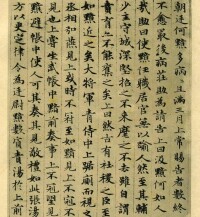 朝廷何黯多病〻且滿三月上常賜告者數終
不愈最後病莊助為請告上曰汲黯何如人
哉助曰使黯任職居官無以踰人然至其輔
少主守城深堅招之不來麾之不去雖自謂
賁育亦不能奪之矣上曰然古有社稷之臣至
如黯近之矣大將軍青侍中上踞廁而視之丞
相弘燕見上或時不冠至如黯見上不冠不
見也上嘗坐武帳中黯前奏事上不冠望見
黯避帳中使人可其奏其見敬禮如此張湯
方以更定律令為廷尉黯數質責湯于上前